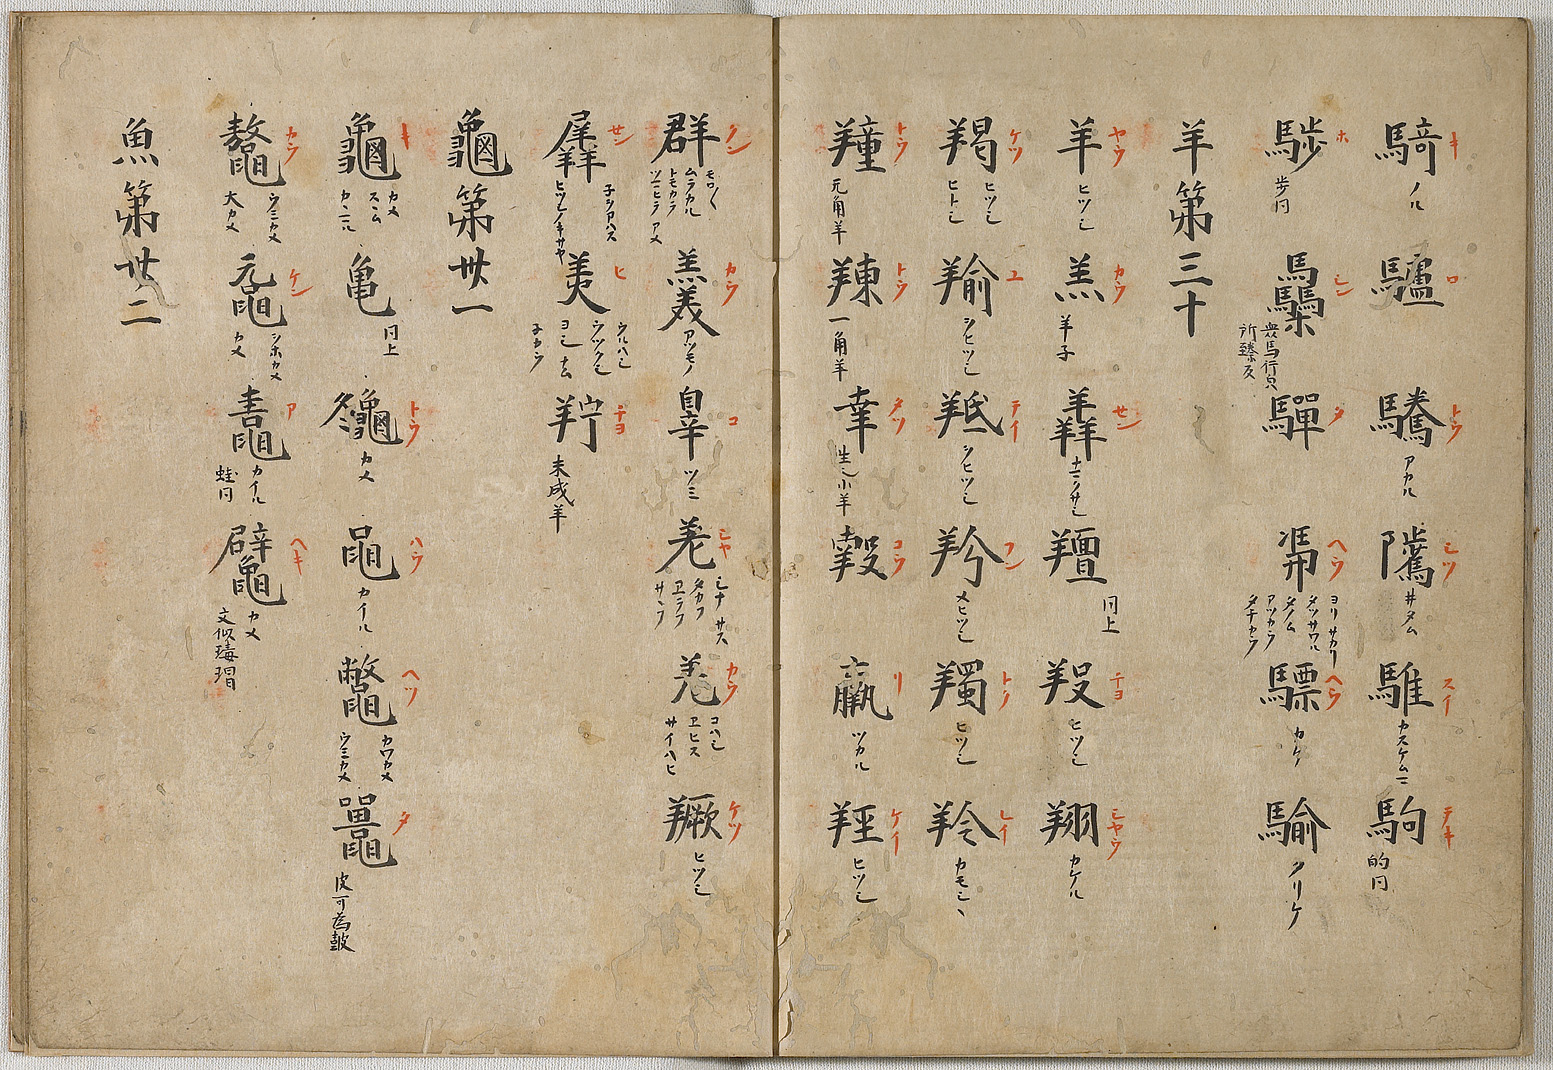 騎 キ ノル 驢 ロ 驣 トウ アカル 騭 シツ サタム 騅 スイ カスケムマ 駒 テキ 的同
䮛 ホ 歩同 驫 シン 衆馬行皃 所臻反 驒 タ 馮 ヘウ ヨリ サカリ タツサワル タノム アツカフ タチカフ 驃 ヘウ カケ 騟 クリケ
羊第三十
羊 ヤウ ヒツシ 羔 カウ 羊子 羴 セン ナマクサシ 羶 同上 羖 チヨ ヒツシ 翔 シヤウ カケル
羯 ケツ ヒツシ ヒトシ 羭 ユ メヒツシ 羝 テイ ヲヒツシ 羒 フン メヒツシ 羥 トク ヒツシ 羚 レイ カモシヽ
羵 トウ 无角羊 𦍌東 トウ 一角羊 羍 タツ 生小羊 㝅 コウ 羸 リ ツカル 羥 ケイ ヒツシ
群 クン モロ〱 ムラカル トモカラ ツヒヒラ アメ 羹 カウ アツモノ 辠 コ ツミ 差 シヤ シナ サス タカフ エラフ サフ 羌 カウ コハシ エヒス サイハヒ 羷 ケツ ヒツシ
羼 セン 子ツアハス ヒツシノキサヤ 羮 ヒ ウルハシ ウツクシ ヨシ 去 子カフ 羜 チヨ 未成羊
龜第卅一
龜 キ カメ スヽム カヽル 亀 同上 䶱 トウ カメ 黽 ハウ カイル 鼈 ヘツ カワカメ ウミカメ 鼉 タ 皮可為皷
鼇 カウ ウミカメ 大カメ 黿 ケン シホカメ カメ 鼃 ア カイル 蛙同 鼊 ヘキ カメ 文似瑇瑁
魚第卅二